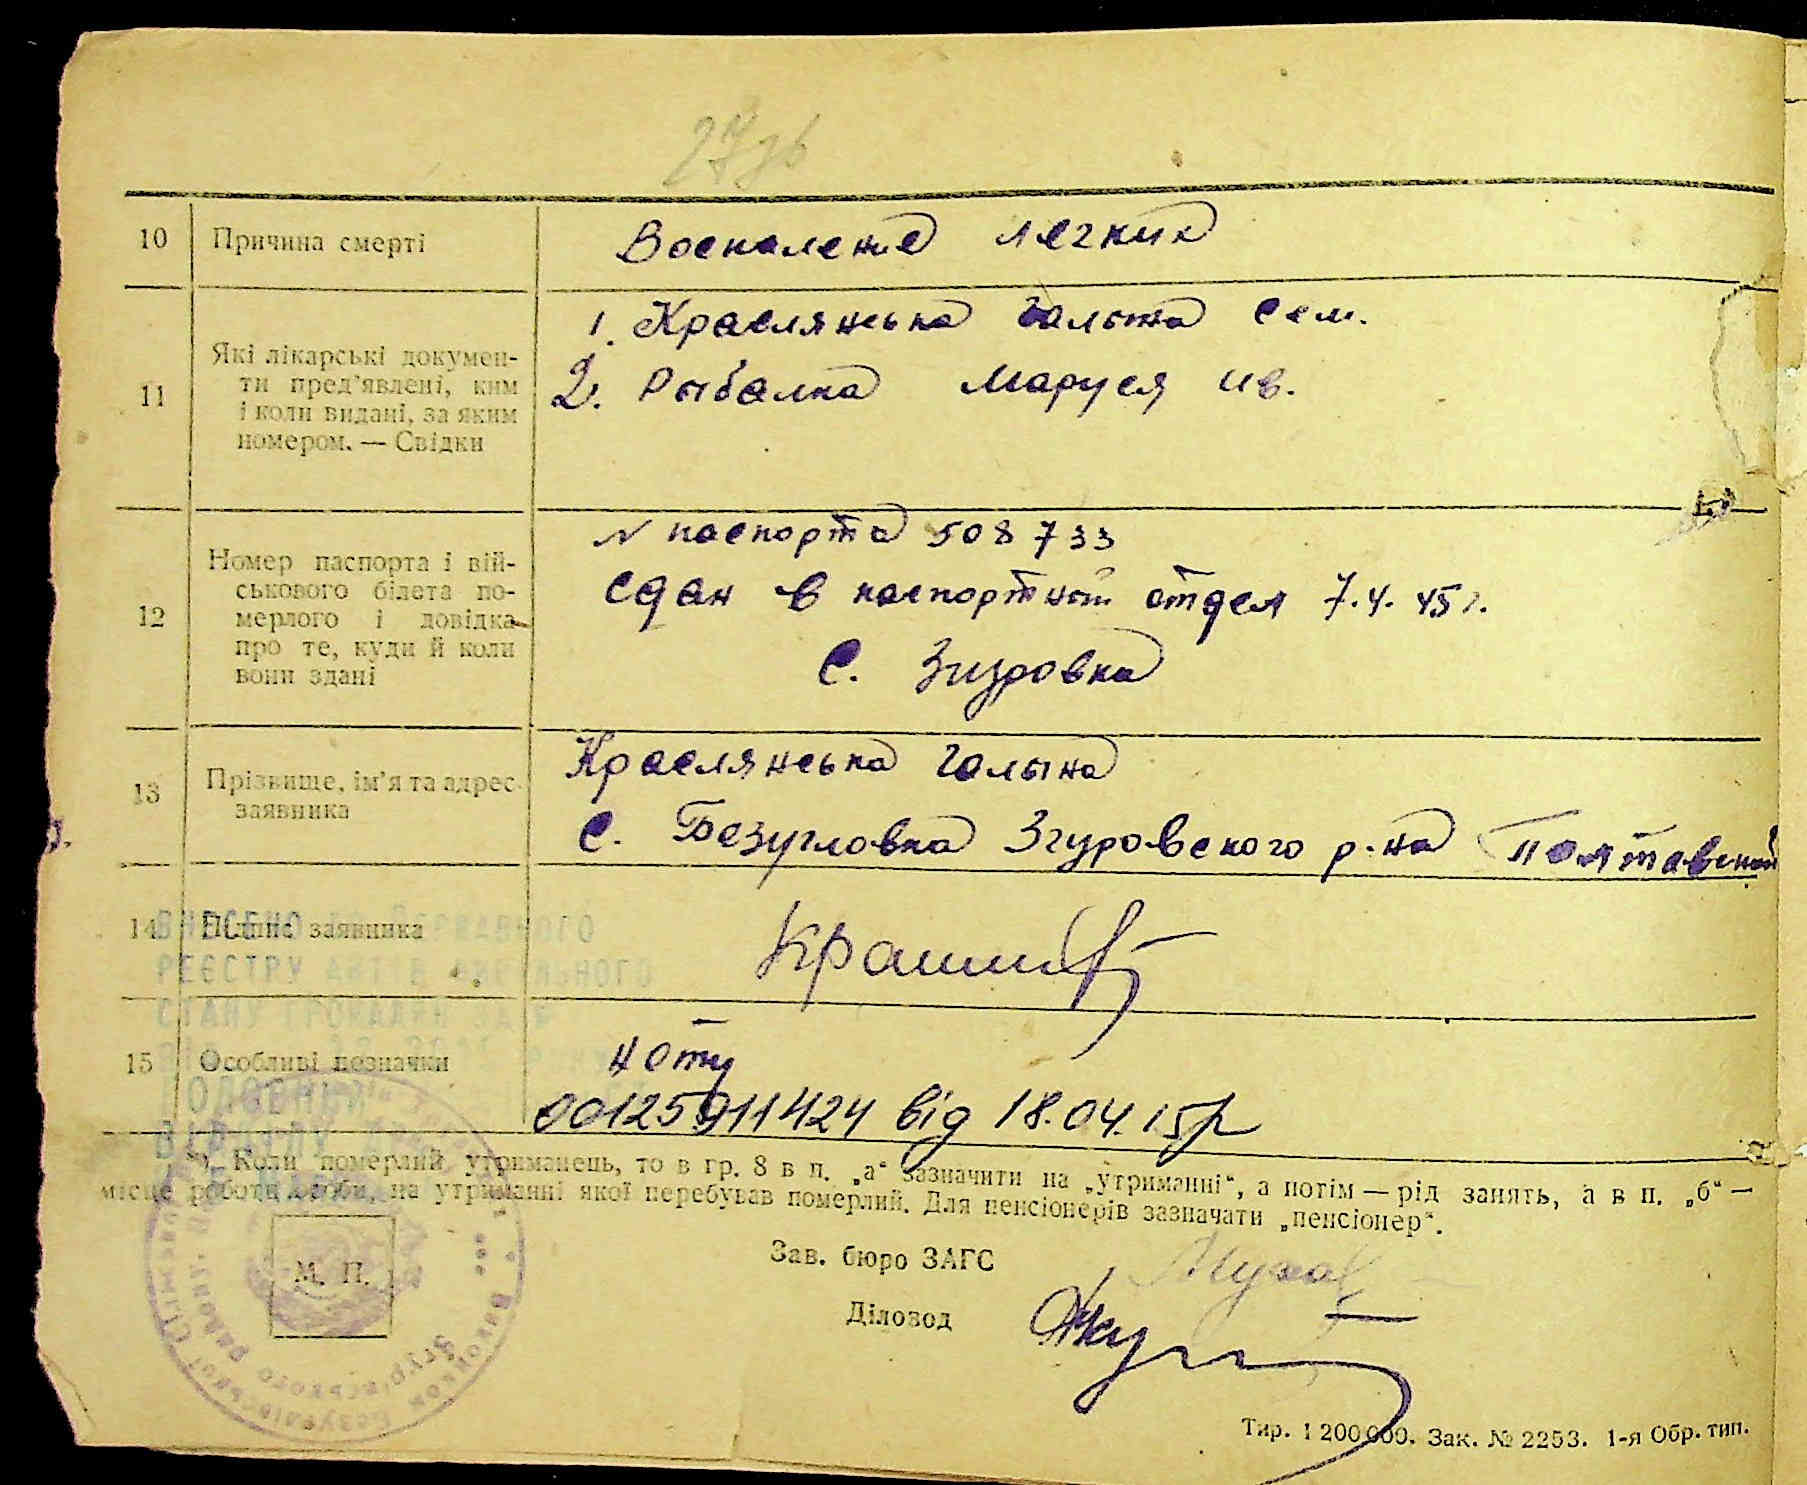 10 Причина смерті Воспаление легких
11 Які лікарські докумен-
ти пред'явлені, ким
і коли видані, за яким
номером. — Свідки
1. Краслянська Галына Сем.
2. Рыбалка Маруся Ив.
12 Номер паспорта і вій-
ськового білета по-
мерлого і довідка
про те, куди й коли
вони здані
N паспорта 508733
Сдан в паспортный отдел 7.4.45 г.
С. Згуровка
13 Прізвище, ім'я та адрес
заявника
Краслянська Галына
С. Безугловка Згуровского р-на Полтавской
14 Підпис заявника
ВНЕСЕНО ДО ДЕРЖАВНОГО
РЕЄСТРУ АКТІВ ЦИВІЛЬНОГО
СТАНУ ГРОМАДЯН
15 Особливі позначки
00125911424 від 18.04.15р
*) Коли померлий утриманець, то в гр. 8 в п. „а“ зазначити на „утриманні“, а потім — рід занять, а в п. „б“ —
місце роботи особи, на утриманні якої перебував померлий. Для пенсіонерів зазначати „пенсіонер“.
М. П.
Зав. бюро ЗАГС
Діловод
Тир. 1 200 000. Зак. № 2253. 1-я Обр. тип.